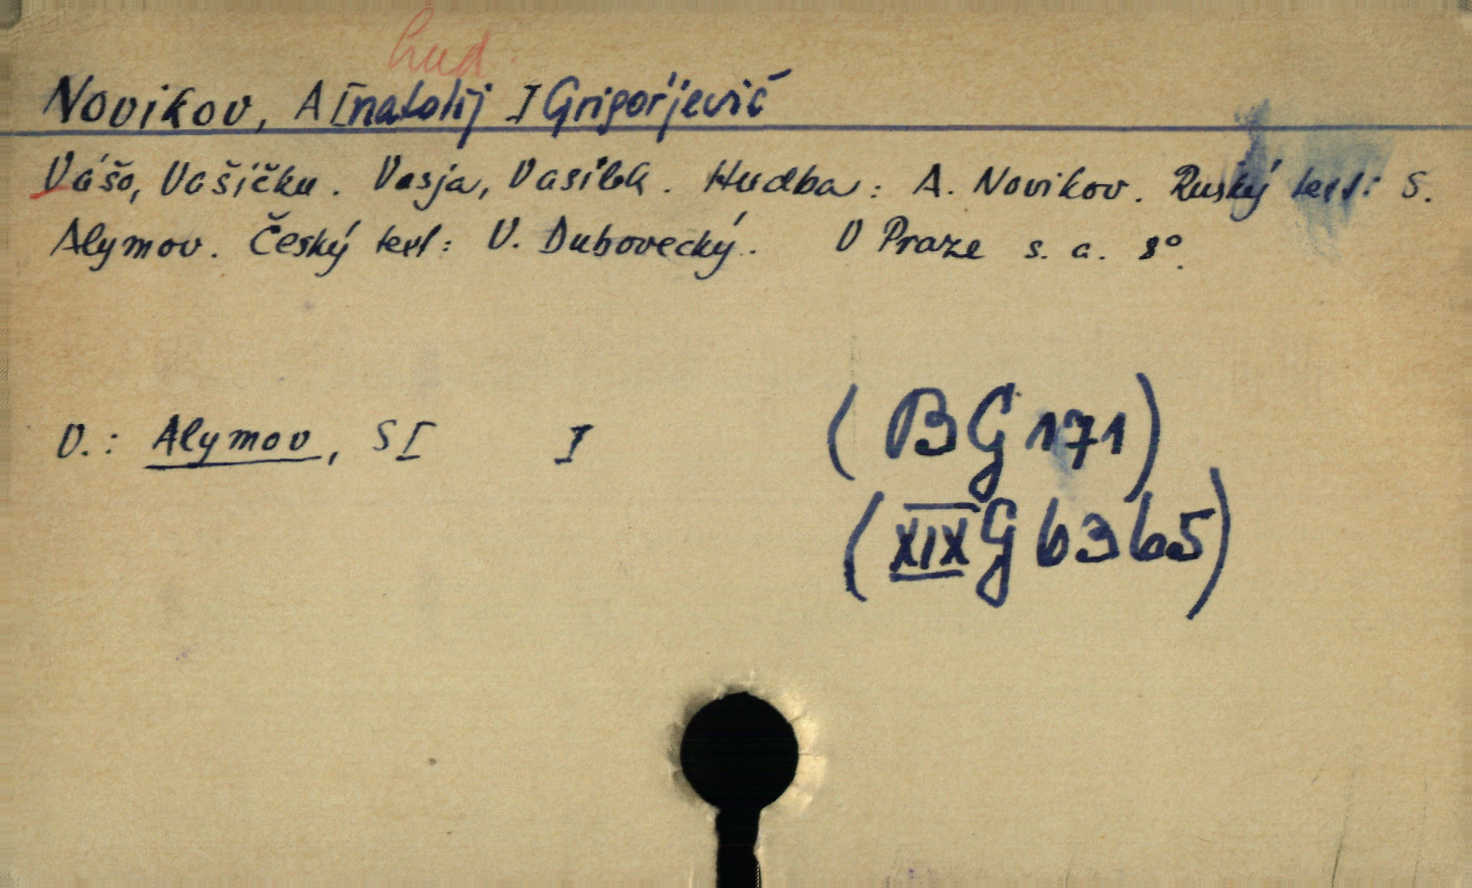 hud.
Novikov, A[natolij] Grigor'jevič
Vášo, Vašíčku. Vasja, Vasilek. Hudba: A. Novikov. Ruský text: S.
Alymov. Český text: V. Dubovecký. V Praze s. a. 8°.
V.: Alymov, S[ ]
(BG 171)
(XIX G 6365)